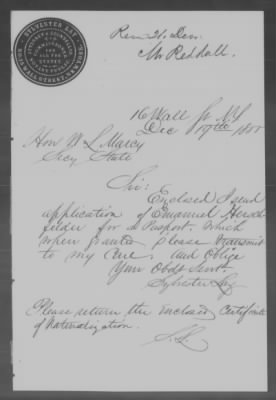 SYLVESTER LAY
Recd 20 Decr
Mr Reddall.
16 Wall St N.Y.
Dec 19th 185
Hon W L Marcy
Secy State
Sir: Enclosed I send
application of Emanuel Hirsch
felder for a Passport. Which
when granted please transmit
to my Care. and Oblige
Your Obdt Servt.
Sylvester Lay
Please return the enclosed Certificate
of Naturalization.
S. L.